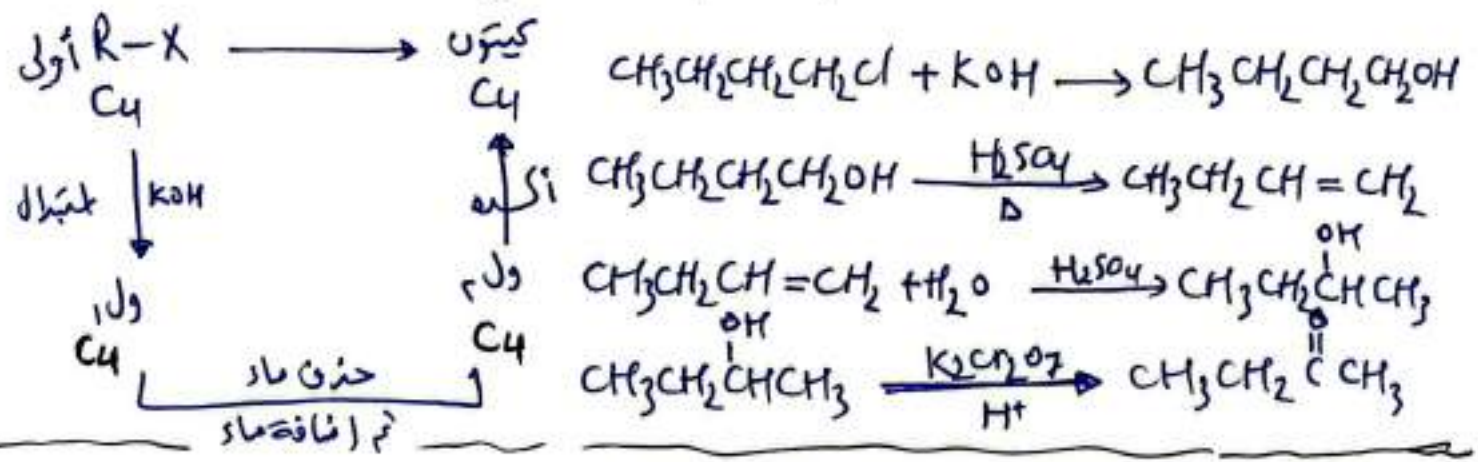 أولي R-X ⟶ كيتون
C4 C4
استبدال ↓ KOH ↑ أكسدة
ول١ ول٢
C4 C4
حذف ماء
ثم إضافة ماء
CH3CH2CH2CH2Cl + KOH ⟶ CH3CH2CH2CH2OH
CH3CH2CH2CH2OH ⟶ CH3CH2CH=CH2
H2SO4
Δ
CH3CH2CH=CH2 + H2O ⟶ CH3CH2CHCH3
H2SO4
OH
CH3CH2CHCH3 ⟶ CH3CH2CCH3
OH
K2Cr2O7
H+
O